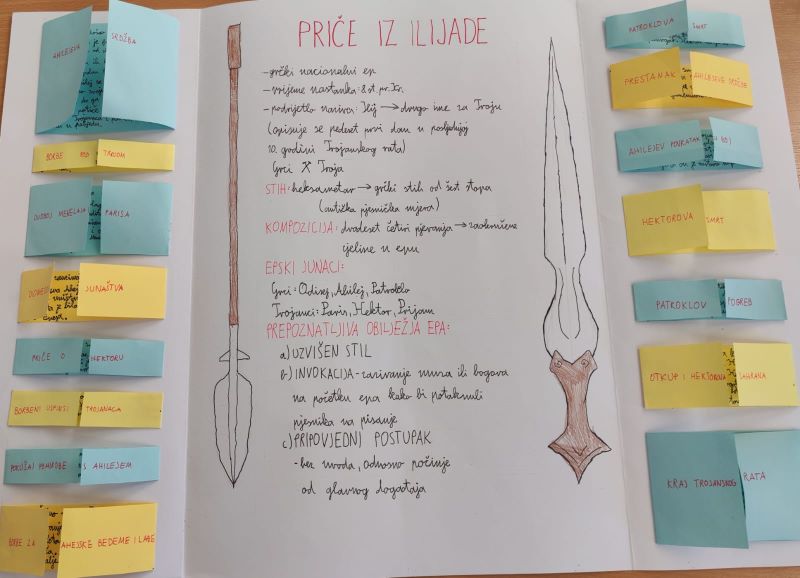 AHILEJEVA SRDŽBA
BORBE POD TROJOM
DVOBOJ MENELAJA PARISA
JUNAŠTVA
PRIČE O HEKTORU
BORBENI USPJESI TROJANACA
POKUŠAJ NAGODBE S AHILEJEM
BORBE ZA AHEJSKE BEDEME I LAĐE
PRIČE IZ ILIJADE
-grčki nacionalni ep
-vrijeme nastanka: 8. st. pr. Kr.
-podrijetlo naziva: Ilij → drugo ime za Troju
(opisuje se pedeset prvi dan u posljednjoj
10. godini Trojanskog rata)
Grci Troja
STIH: heksametar → grčki stih od šest stopa
(antička pjesnička mjera)
KOMPOZICIJA: dvadeset četiri pjevanja → zaokružene
cjeline u epu
EPSKI JUNACI:
Grci: Odisej, Ahilej, Patroklo
Trojanci: Paris, Hektor, Prijam
PREPOZNATLJIVA OBILJEŽJA EPA:
a) UZVIŠEN STIL
b) INVOKACIJA - zazivanje muza ili bogova
na početku epa kako bi potaknuli
pjesnika na pisanje
c) PRIPOVJEDNI POSTUPAK
-bez uvoda, odnosno počinje
od glavnog događaja
PATROKLOVA SMRT
PRESTANAK AHILEJEVE SRDŽBE
AHILEJEV POVRATAK U BOJ
HEKTOROVA SMRT
PATROKLOV POGREB
OTKUP I HEKTOROVA SAHRANA
KRAJ TROJANSKOG RATA